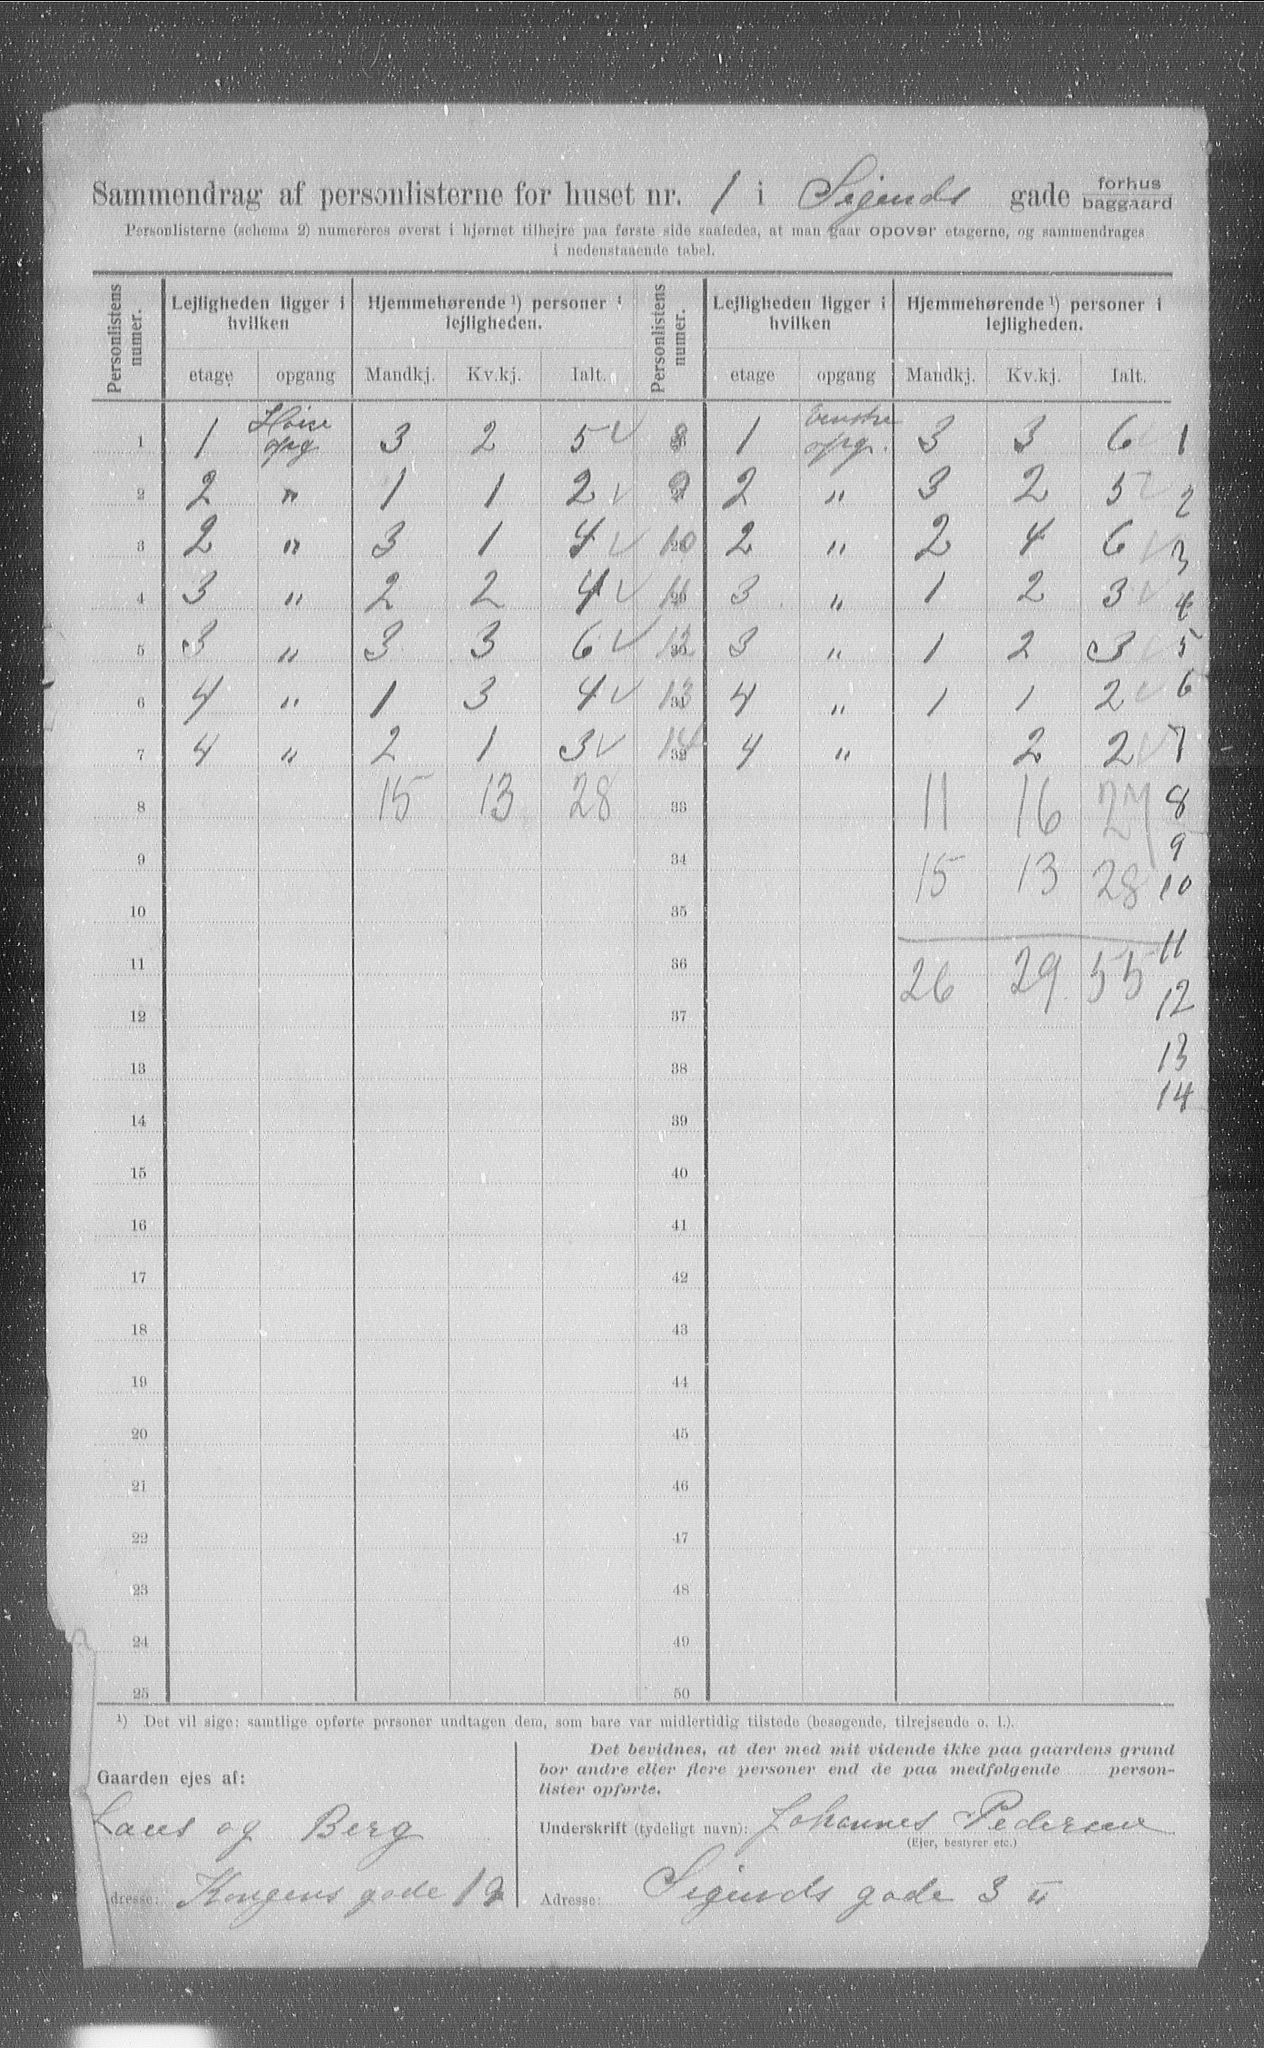 Sammendrag af personlisterne for huset nr. 1 i Sigurds gade forhus baggaard
Personlisterne (schema 2) numereres øverst i hjørnet tilhøjre paa første side saaledes, at man gaar opover etagerne, og sammendrages
i nedenstaaende tabel.
Personlistens numer. Lejligheden ligger i hvilken Hjemmehørende ¹) personer i lejligheden. Personlistens numer. Lejligheden ligger i hvilken Hjemmehørende ¹) personer i lejligheden.
etage opgang Mandkj. Kv.kj. Ialt. etage opgang Mandkj. Kv.kj. Ialt.
1 1 opg 3 2 5 ✓ 8 1 Venstre opg. 3 3 6 ✓ 1
2 2 " 1 1 2 ✓ 9 2 " 3 2 5 ✓ 2
3 2 " 3 1 4 ✓ 10 2 " 2 4 6 ✓ 3
4 3 " 2 2 4 ✓ 11 3 " 1 2 3 ✓ 4
5 3 " 3 3 6 ✓ 12 3 " 1 2 3 ✓ 5
6 4 " 1 3 4 ✓ 13 4 " 1 1 2 ✓ 6
7 4 " 2 1 3 ✓ 14 4 " 2 2 ✓ 7
8 15 13 28 33 11 16 27 8
9 34 15 13 28 9
10
10 35
11 36 26 29 55 11
12 37 12
13 38 13
14
14 39
15 40
16 41
17 42
18 43
19 44
20 45
21 46
22 47
23 48
24 49
25 50
¹) Det vil sige: samtlige opførte personer undtagen dem, som bare var midlertidig tilstede (besøgende, tilrejsende o. l.).
Gaarden ejes af:
og Berg
adresse: Kongens gade 12
Det bevidnes, at der med mit vidende ikke paa gaardens grund
bor andre eller flere personer end de paa medfølgende person-
lister opførte.
Underskrift (tydeligt navn): Johannes Pedersen
(Ejer, bestyrer etc.)
Adresse: Sigurds gade 3 II